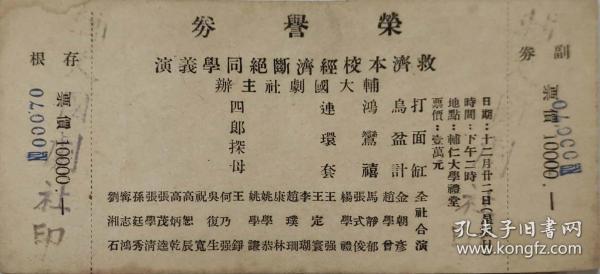 榮譽劵
救濟本校經濟斷絕同學義演
輔大國劇社主辦
副劵
№ 00070
演員 10000.—
日期：十二月廿二日
時間：下午二時
地點：輔仁大學禮堂
票價：壹萬元
打面缸 全社合演
烏盆計 金朝彥 趙學曾
鴻鸞禧 馬靜郁 張式俊 楊學禮
連環套 王寰 李定強 趙璞瑚 康林珊
四郎探母
姚學恭
姚學謙
王錚
何乃强
吳復生
祝寬
高恕辰
高炳乾
張茂逵
張學清
孫廷秀
寗志鴻
劉湘石
存根
№ 00070
10000.—
社印
孔夫子旧书网